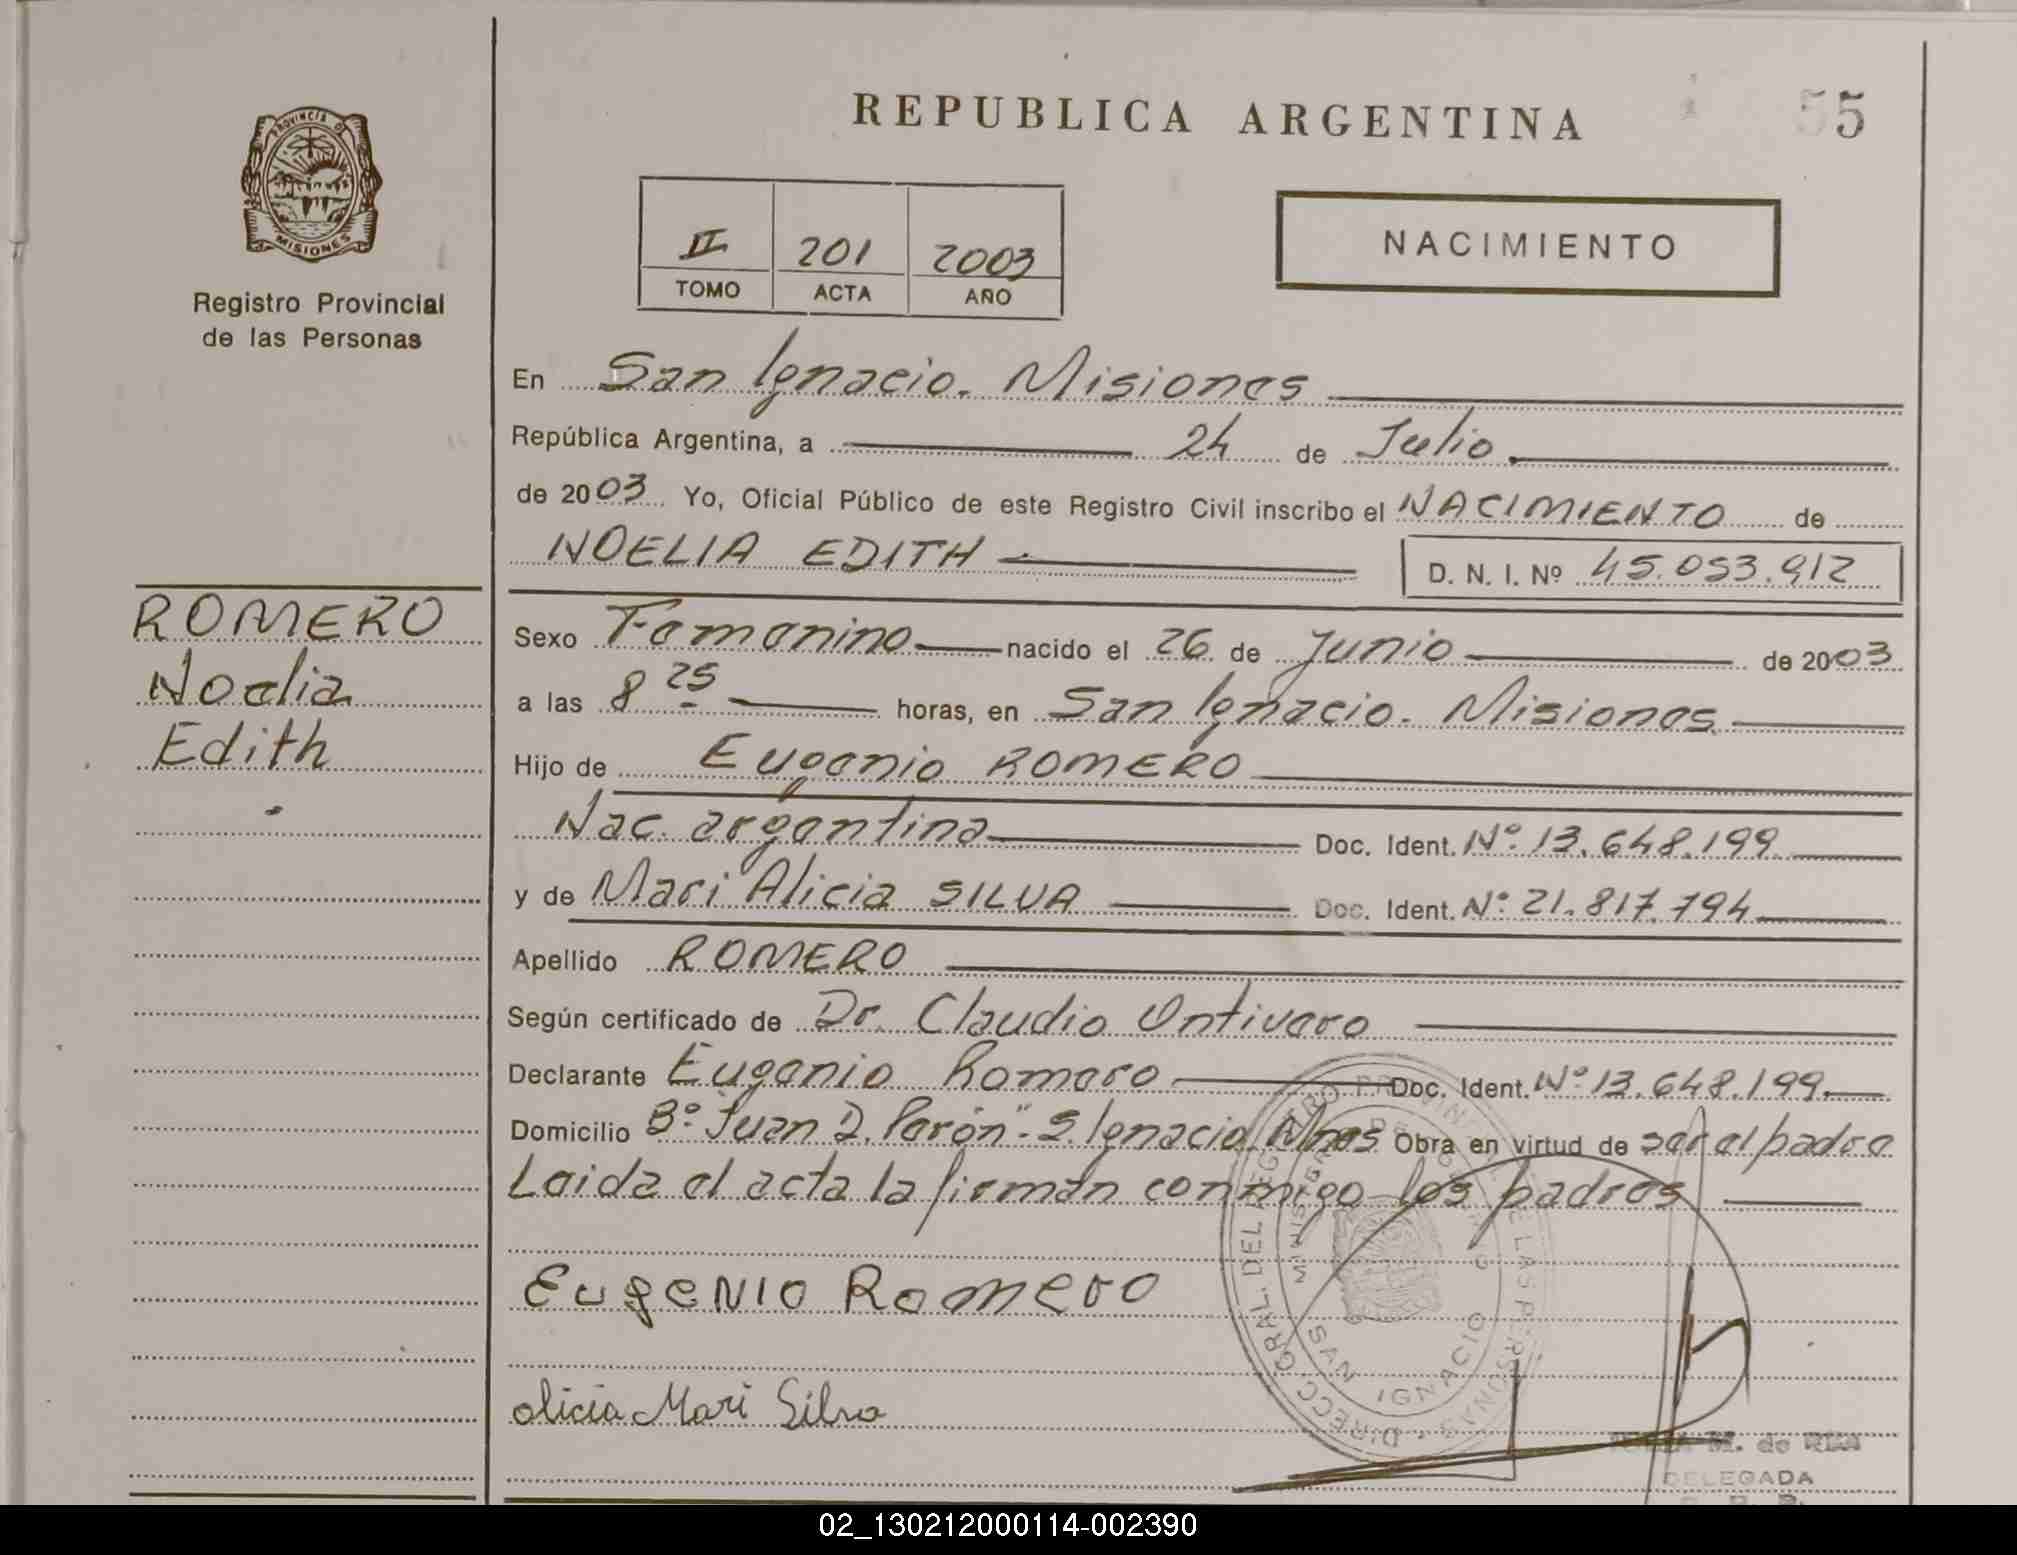 REPUBLICA ARGENTINA
55
PROVINCIA DE
MISIONES
Registro Provincial
de las Personas
II 201 2003
TOMO ACTA AÑO
NACIMIENTO
En San Ignacio. Misiones
República Argentina, a 24 de Julio
de 2003 Yo, Oficial Público de este Registro Civil inscribo el NACIMIENTO de
NOELIA EDITH D. N. I. Nº 45.053.912
ROMERO
Noelia
Edith
Sexo Femenino nacido el 26 de Junio de 2003
a las 8 25 horas, en San Ignacio. Misiones
Hijo de Eugenio ROMERO
Nac. argentina Doc. Ident. Nº 13.648.199
y de Mari Alicia SILVA Doc. Ident. Nº 21.817.794
Apellido ROMERO
Según certificado de Dr. Claudio Ontivero
Declarante Eugenio Romero Doc. Ident. Nº 13.648.199
Domicilio Bº "Juan D. Perón". S. Ignacio Mnes Obra en virtud de ser el padre
Leida el acta la firman conmigo los padres
Eugenio Romero
alicia Mari Silva
DIRECC. GRAL. DEL REGISTRO PROVINCIAL DE LAS PERSONAS
SAN IGNACIO
M. de REA
DELEGADA
02_130212000114-002390